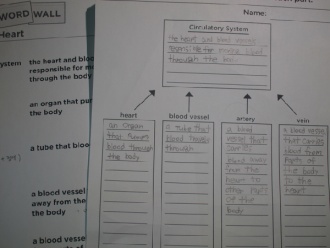 WORD WALL
Heart
system
the heart and blood
responsible for
through the body
an organ that pu
a tube that bloo
a blood vessel
away from the
the body
a blood vessel
to the heart
part.
Name:
Circulatory System
the heart and blood vessels
responsible for moving blood
through the body
heart
an organ
that pumps
blood through
the body
blood vessel
a tube that
blood travels
through
artery
a blood
vessel that
carries
blood away
from the
heart to
other parts
of the
body
vein
a blood vessel
that carries
blood from
parts of
the body
to
the heart